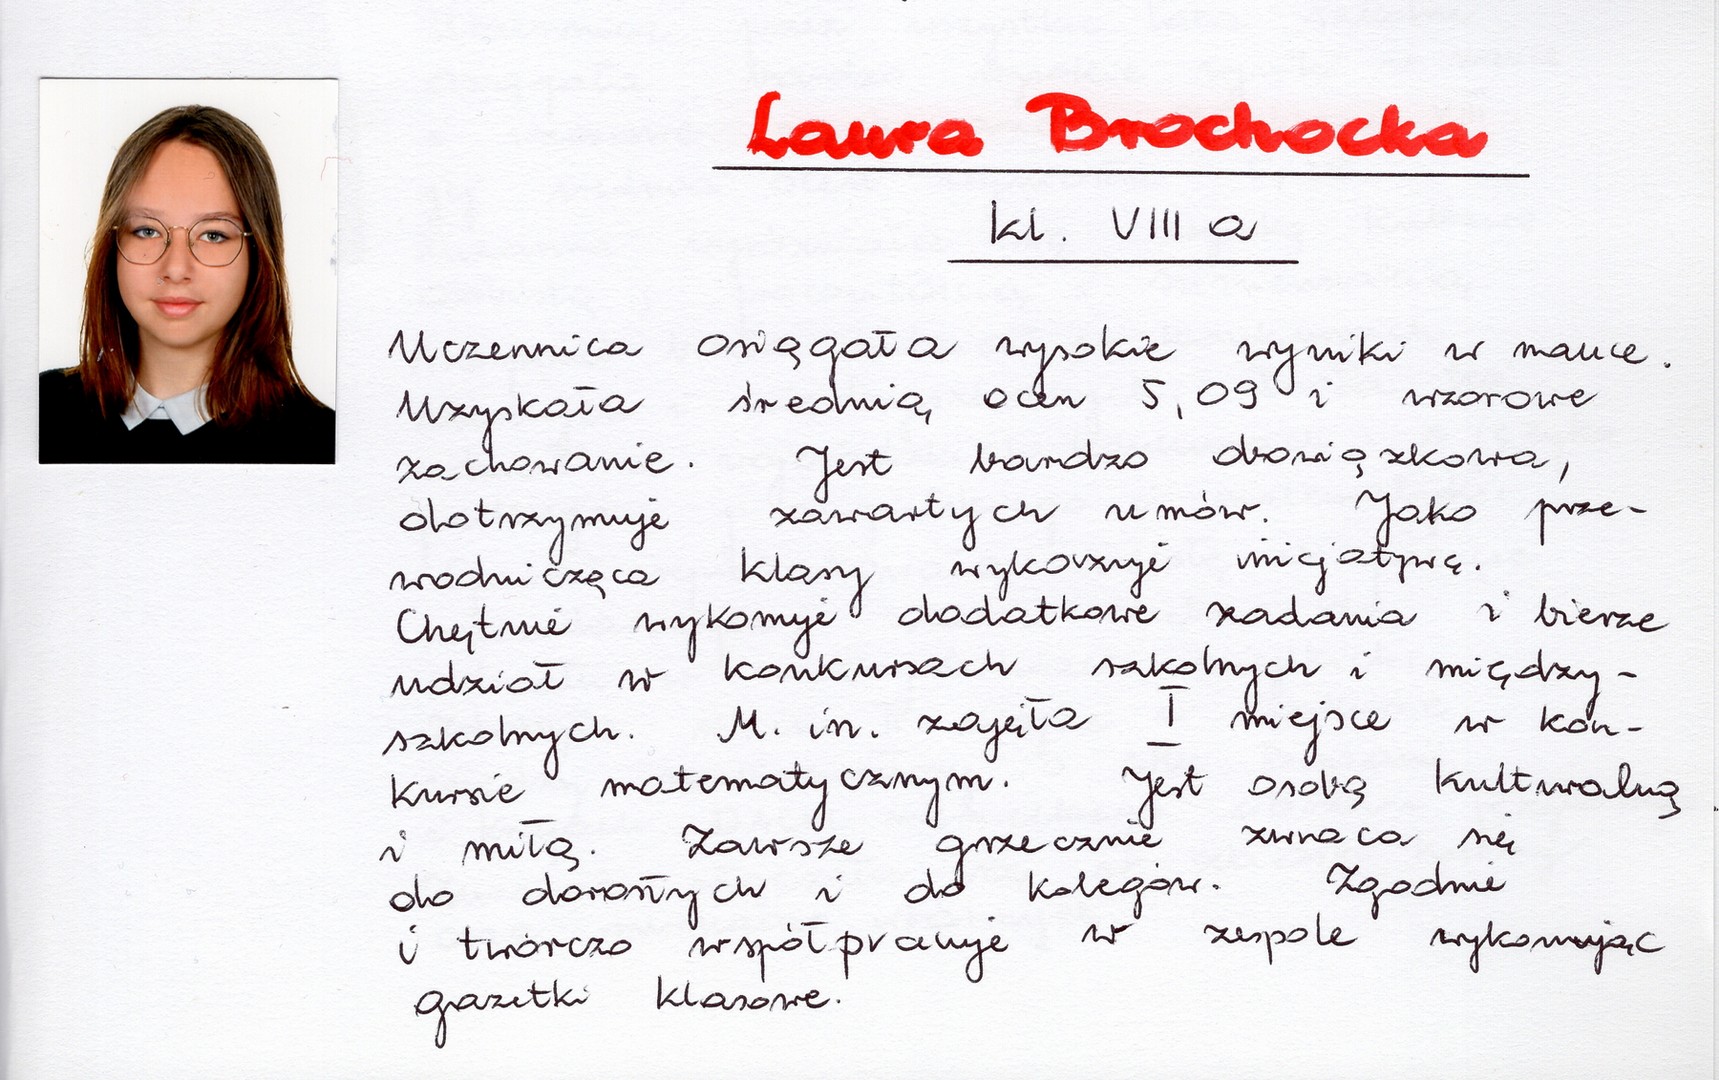 Laura Brochocka
kl. VIII a
Uczennica osiągała wysokie wyniki w nauce.
Uzyskała średnią ocen 5,09 i wzorowe
zachowanie. Jest bardzo obowiązkowa,
dotrzymuje zawartych umów. Jako prze-
wodnicząca klasy wykazuje inicjatywę.
Chętnie wykonuje dodatkowe zadania i bierze
udział w konkursach szkolnych i między-
szkolnych. M. in. zajęła I miejsce w kon-
kursie matematycznym. Jest osobą kulturalną
i miłą. Zawsze grzecznie zwraca się
do dorosłych i do kolegów. Zgodnie
i twórczo współpracuje w zespole wykonując
gazetki klasowe.